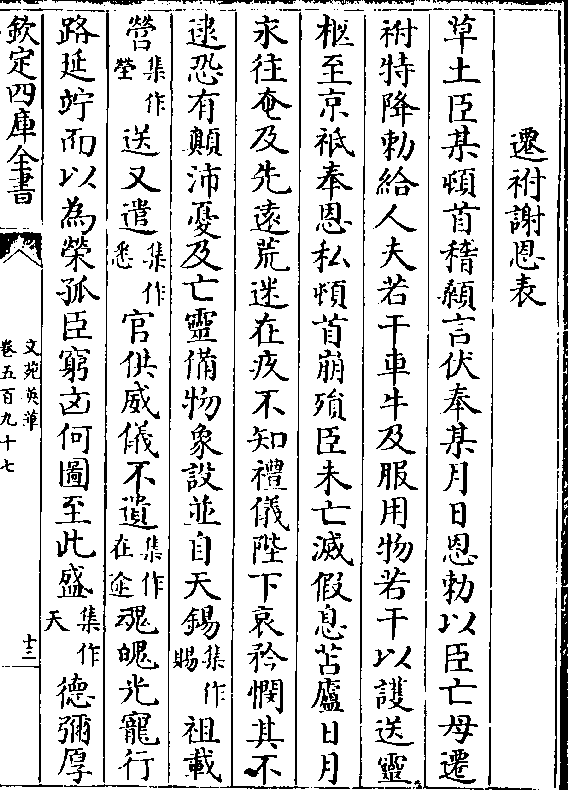 遷祔謝恩表
草土臣某頓首稽顙言伏奉某月日恩勅以臣亡母遷
祔特降勅給人夫若干車牛及服用物若干以護送靈
柩至京祗奉恩私頓首崩殞臣未亡滅假息苫廬日月
永往奄及先遠荒迷在疚不知禮儀陛下哀矜憫其不
逮恐有顛沛憂及亡靈備物象設並自天錫集作賜祖載
營集作塋送又遣集作悉官供威儀不遺集作在途魂魄光寵行
路延竚而以為榮孤臣窮凶何圖至此盛集作天德彌厚
欽定四庫全書
文苑英華
卷五百九十七
十三